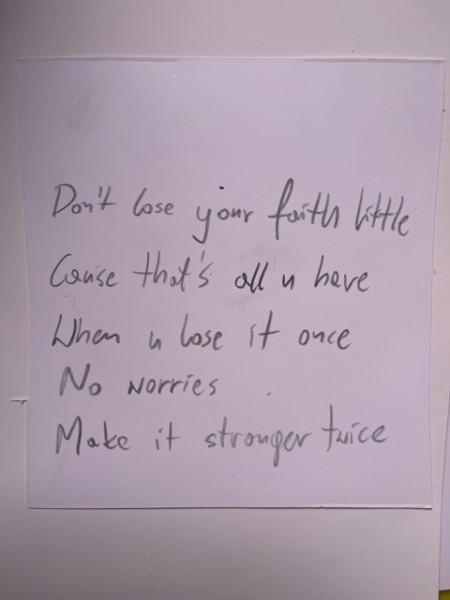 Don't lose your faith little
Cause that's all u have
When u lose it once
No worries
Make it stronger twice